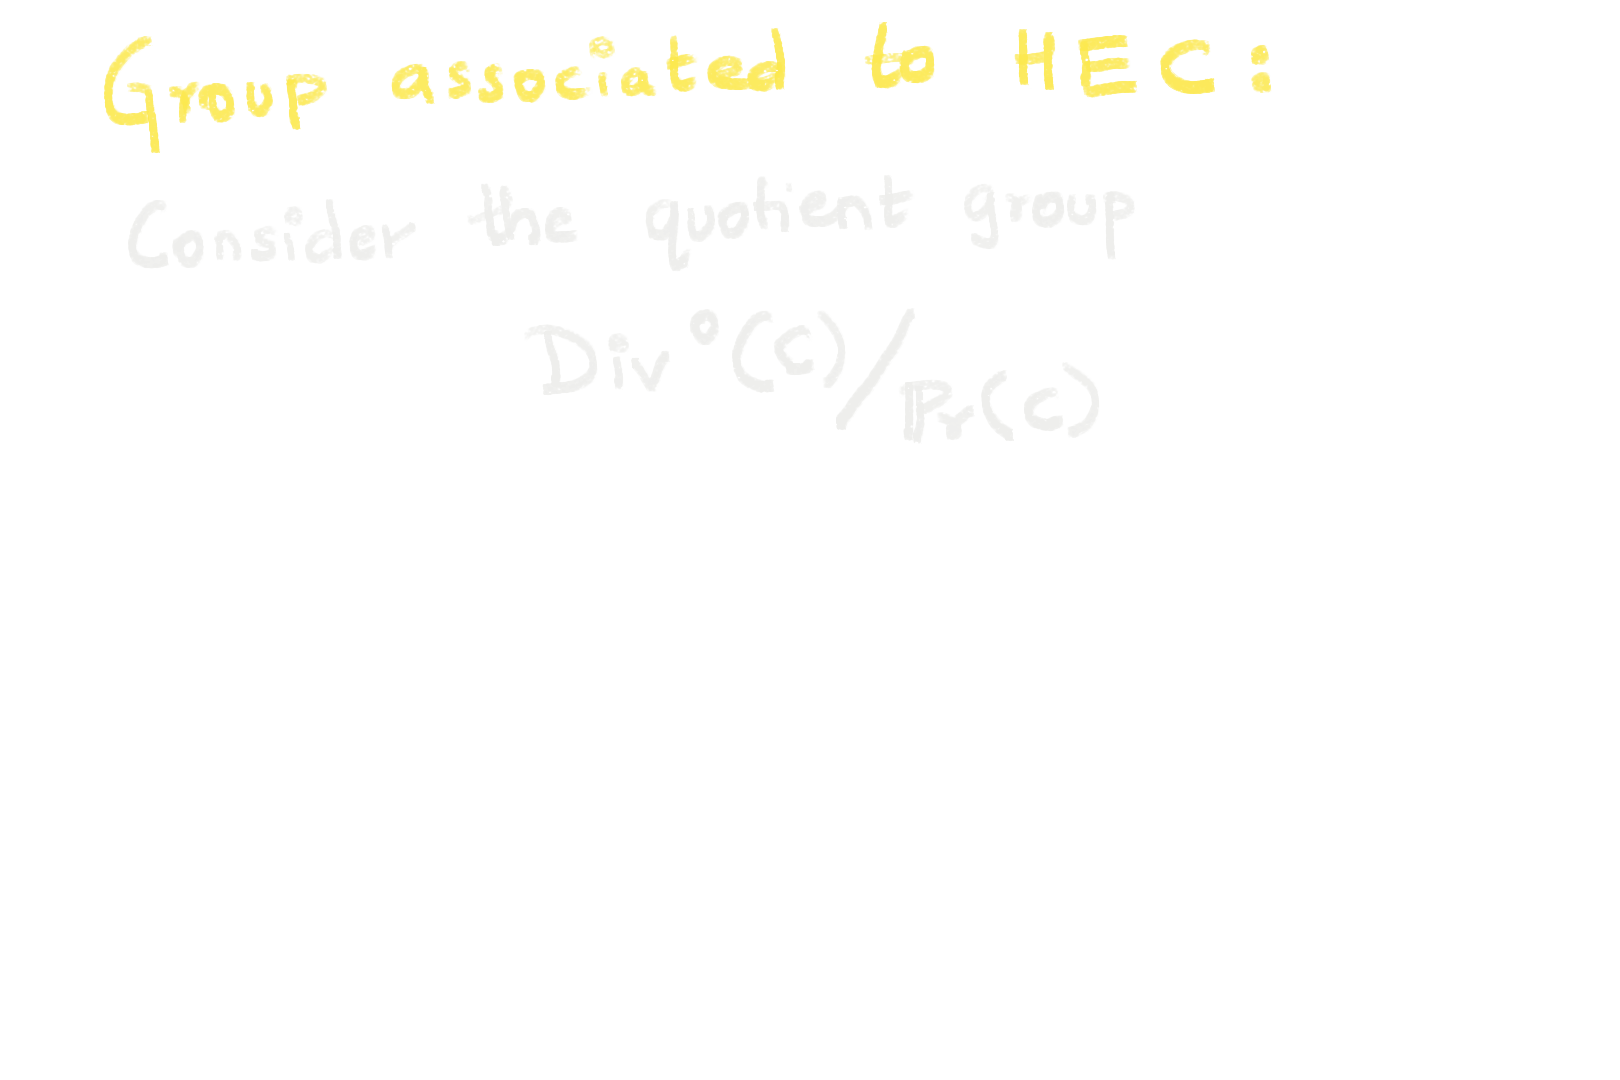 Group associated to HEC:
Consider the quotient group
Div°(C)/ℙr(C)